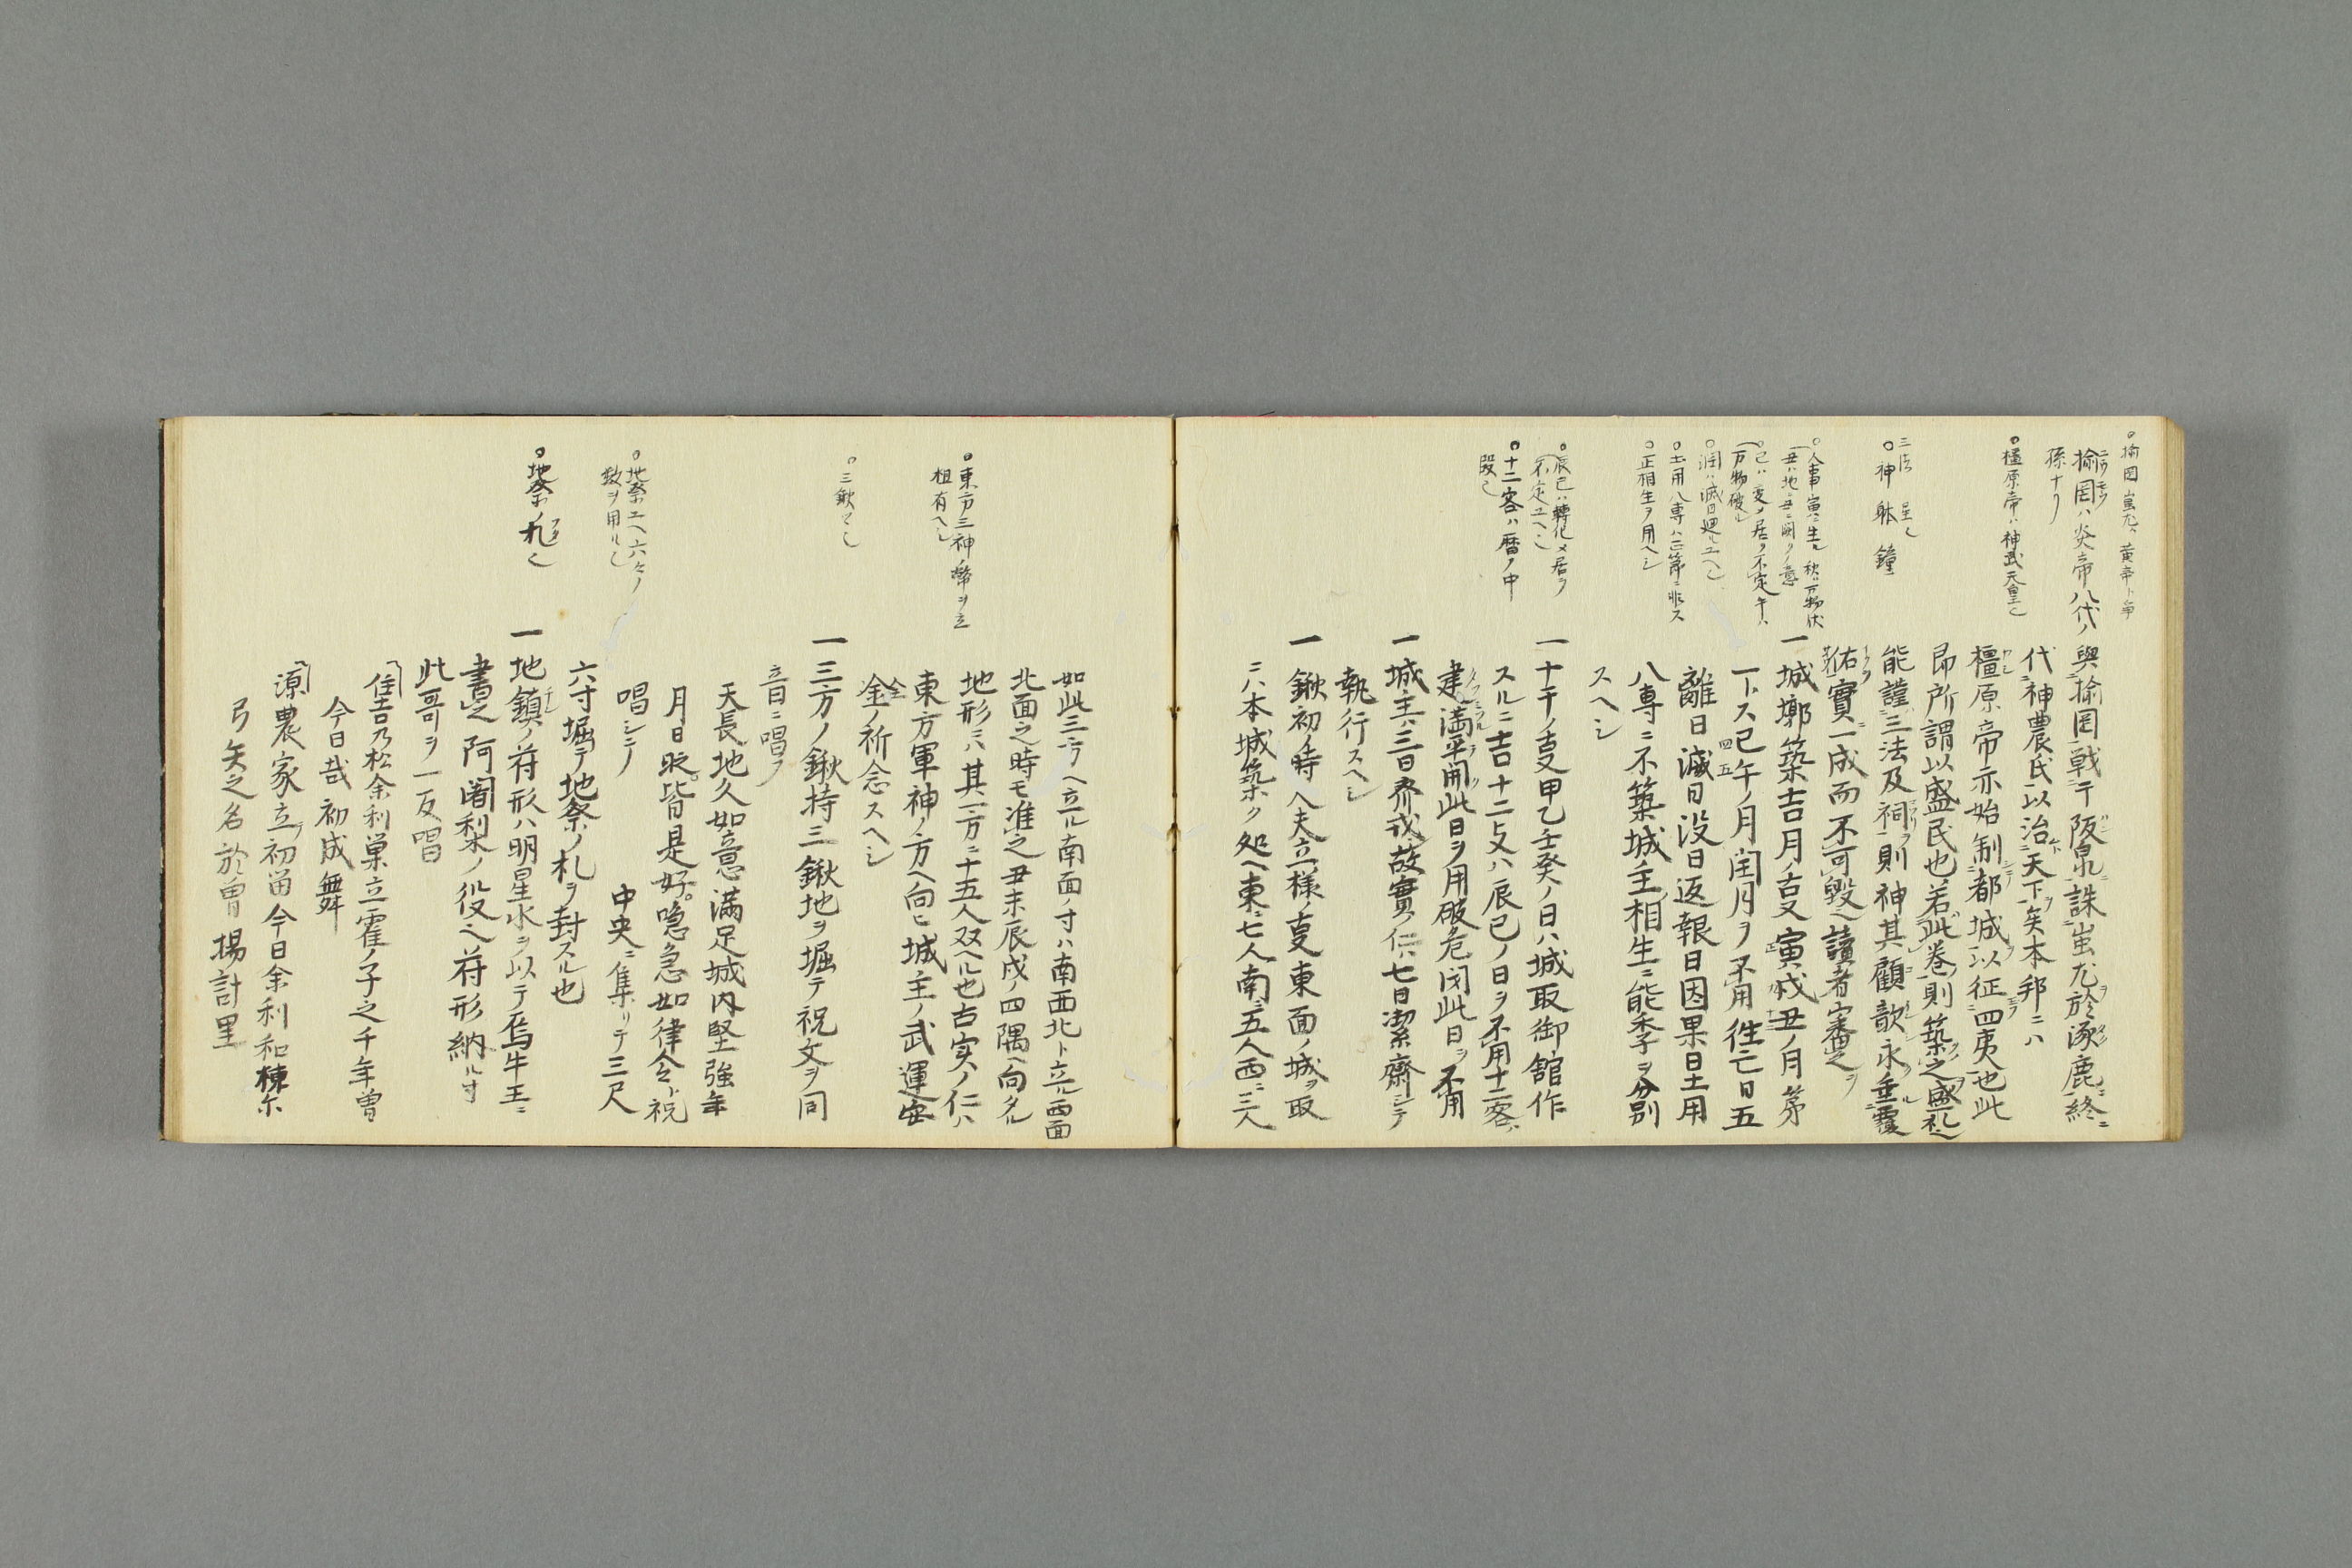 ○揄罔蚩尤ハ黄帝ト争
揄罔ハ炎帝八代ノ
孫ナリ
○橿原帝ハ神武天皇也
三法 呈也
○神躰 鐘
○人事ハ寅ニ生ル 秋ハ万物伏
丑ハ地ハ丑ニ闢クノ意
○巳ハ変メ居ヲ不定午ハ
万物破ル
○潤ハ滅日廻ル工ヘ也
○土用八専ハ
○正相生ヲ用ヘシ
○辰巳ハ轉化メ居ヲ
不定工ヘ也
○十二客ハ暦ノ中
段也
與揄罔戰于阪泉誅蚩尤於涿鹿終ニ
代神農氏以治天下矣本邦ニハ
橿原帝亦始制都城以征四夷也此
即所謂以盛民也若此巻則築之盛礼也
能謹三法及祠則神其顧歆永垂覆
祐實一成而不可毀也讀者審之ヲ
一城墎築吉月ノ夏寅戌丑ノ月第
一トス巳午ノ月閏月ヲ不用徃亡日五
離日滅日没日返報日因果日土用
八専ニ不築城主相生ニ能季ヲ分別
スヘシ
一十干ノ夏甲乙壬癸ノ日ハ城取御舘作
スルニ吉十二支ハ辰巳ノ日ヲ不用十二客ハ
建満平開此日ヲ用破危閉此日ヲ不用
一城主ハ三日斎戒故實ノ仁ハ七日潔齋シテ
執行スヘシ
一鍬初ノ時人夫立様ノ夏東面ノ城ヲ取
ニハ本城築ク処ヘ東ニ七人南ニ五人西ニ三人
○東方三神ノ幣ヲ立
柤有ヘシ
○三鍬
○地祭工ヘ六々ノ
数ヲ用ル也
○地祭ノ札也
如此三方ヘ立ル南面ノ寸ハ南西北ト立ル西面
北面之時モ准之丑未辰戌ノ四隅ヘ向タル
地形ニハ其二方ニ十五人双ヘル也古実ノ仁ハ
東方軍神ノ方ヘ向ヒ城主ノ武運安
全ノ祈念スヘシ
一三方ノ鍬持三鍬地ヲ堀テ祝文ヲ同
音ニ唱フ
天長地久如意満足城内堅強年
月日時皆是好。喼急如律令ト祝
唱シテ 中央ニ集リテ三尺
六寸堀テ地祭ノ札ヲ封スル也
一地鎮ノ符形ハ明星水ヲ以テ烏牛王ニ
書之阿闍梨ノ役也符形納ル寸
此哥ヲ一反唱
住吉乃松余利巣立霍ノ子之千年曽
今日哉初成舞
源農家立初留今日余利和棟尓
弓矢之名於曽揚計里